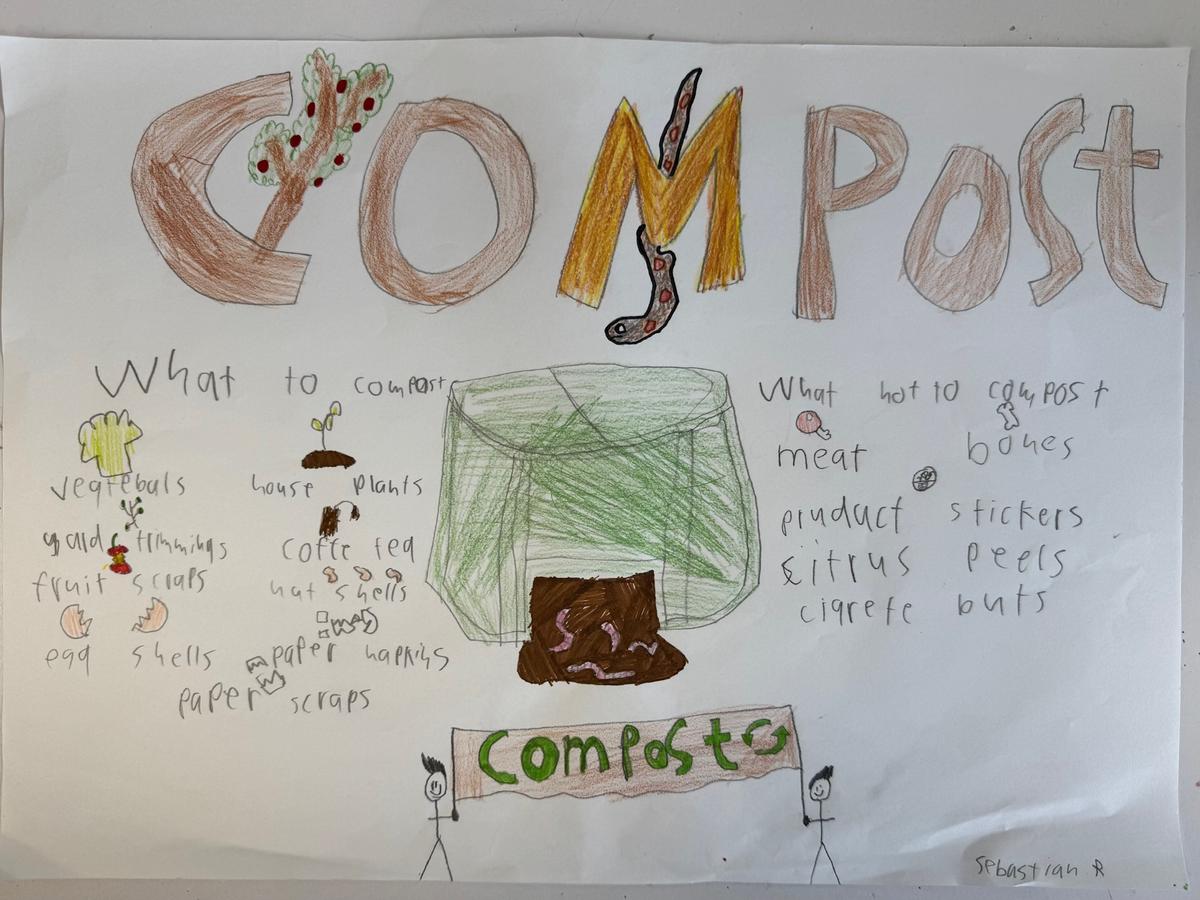 COMPOST
What to compost
vegtebals
house plants
yard trimmings
coffe tea
fruit scraps
nut shells
egg shells
paper napkins
paper scraps
What not to compost
meat
bones
pruduct stickers
citrus peels
cigrete buts
compost
Sebastian R